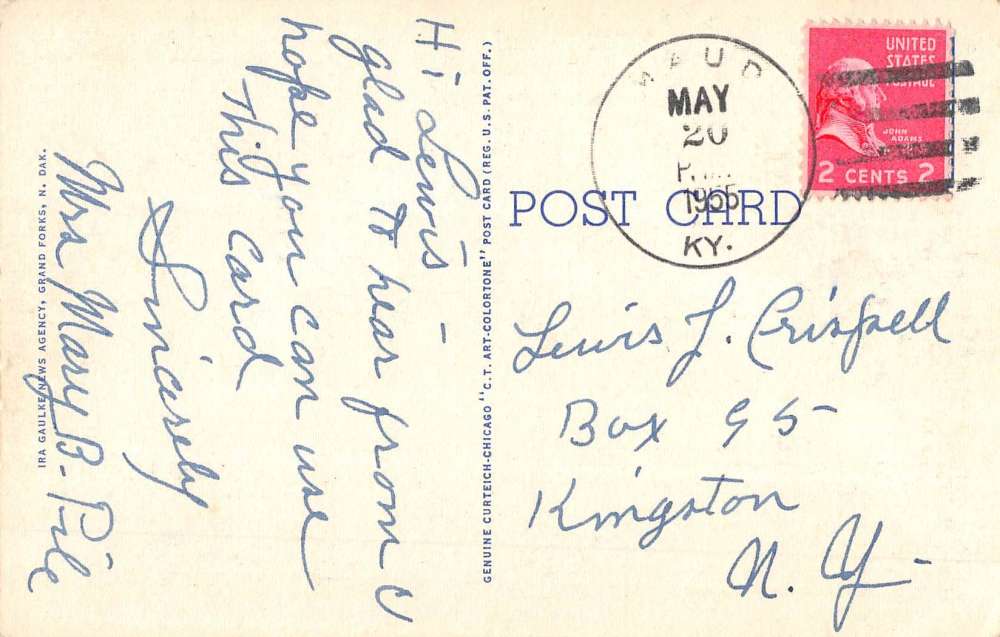 Hi Lewis -
glad to hear from U
hope you can use
This Card
Sincerely
Mrs Mary B. Pile
IRA GAULKE NEWS AGENCY, GRAND FORKS, N. DAK.
GENUINE CURTEICH-CHICAGO "C.T. ART-COLORTONE" POST CARD (REG. U.S. PAT. OFF.)
POST CARD
MAUD
MAY
20
P.M.
1955
KY.
UNITED
STATES
POSTAGE
JOHN
ADAMS
2 CENTS 2
Lewis J. Crispell
Box 95
Kingston
N. Y.